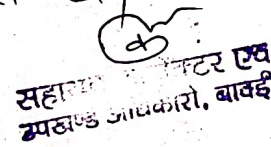 सहा क्टर एवं
उपखण्ड अधिकारी, बावई